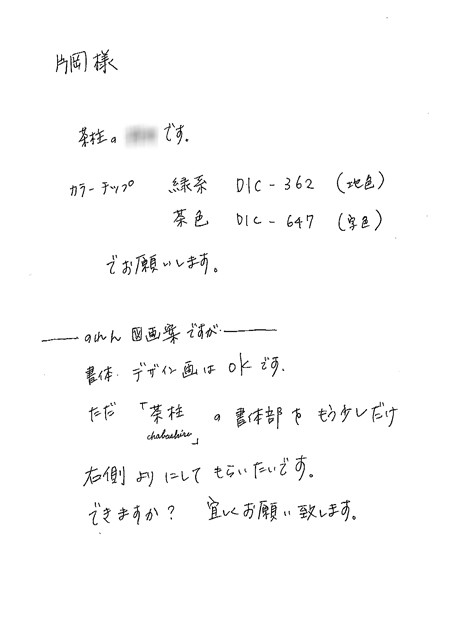 片岡様
茶柱の です.
カラーチップ 緑系 DIC-362 (地色)
茶色 DIC-647 (字色)
でお願いします。
のれん 図画案ですが
書体・デザイン画は OKです.
ただ「茶柱 chabashira」の書体部を もう少しだけ
右側 よりにして もらいたいです。
できますか? 宜しくお願い致します。